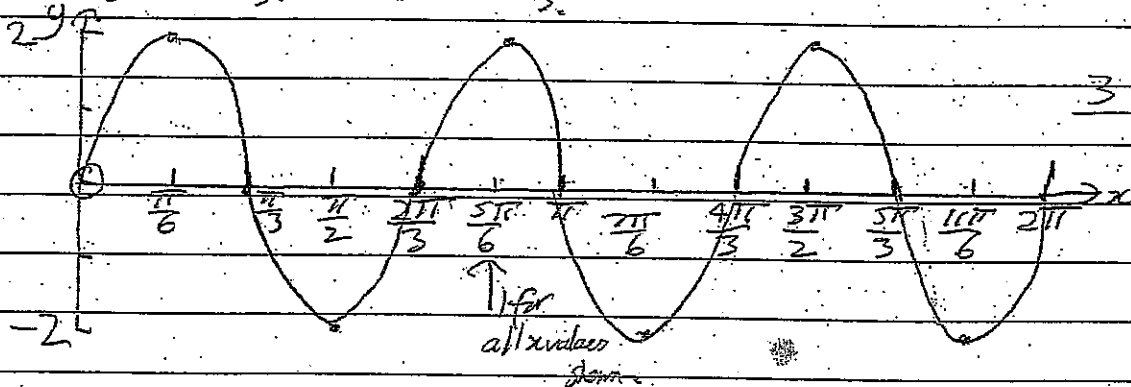 2 y
3
π/6 π/3 π/2 2π/3 5π/6 π 7π/6 4π/3 3π/2 5π/3 11π/6 2π x
-2
1 for
all x values
shown